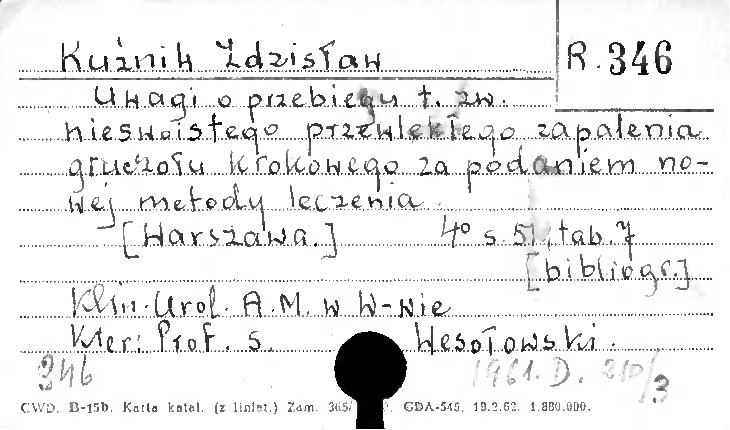 Kuźnik Zdzisław R. 346
Uwagi o przebiegu t. zw.
nieswoistego przewlekłego zapalenia
gruczołu krokowego za podaniem no-
wej metody leczenia.
[Warszawa.] 4° s. 51, tab. 7
[bibliogr.]
Klin. Urol. A.M. w W-wie
Kier: Prof. S. Wesołowski.
346 1961. D. 210/3
CWD. B-15b. Karta katal. (z liniat.) Zam. 365/ GDA-545. 19.2.62. 1.880.000.